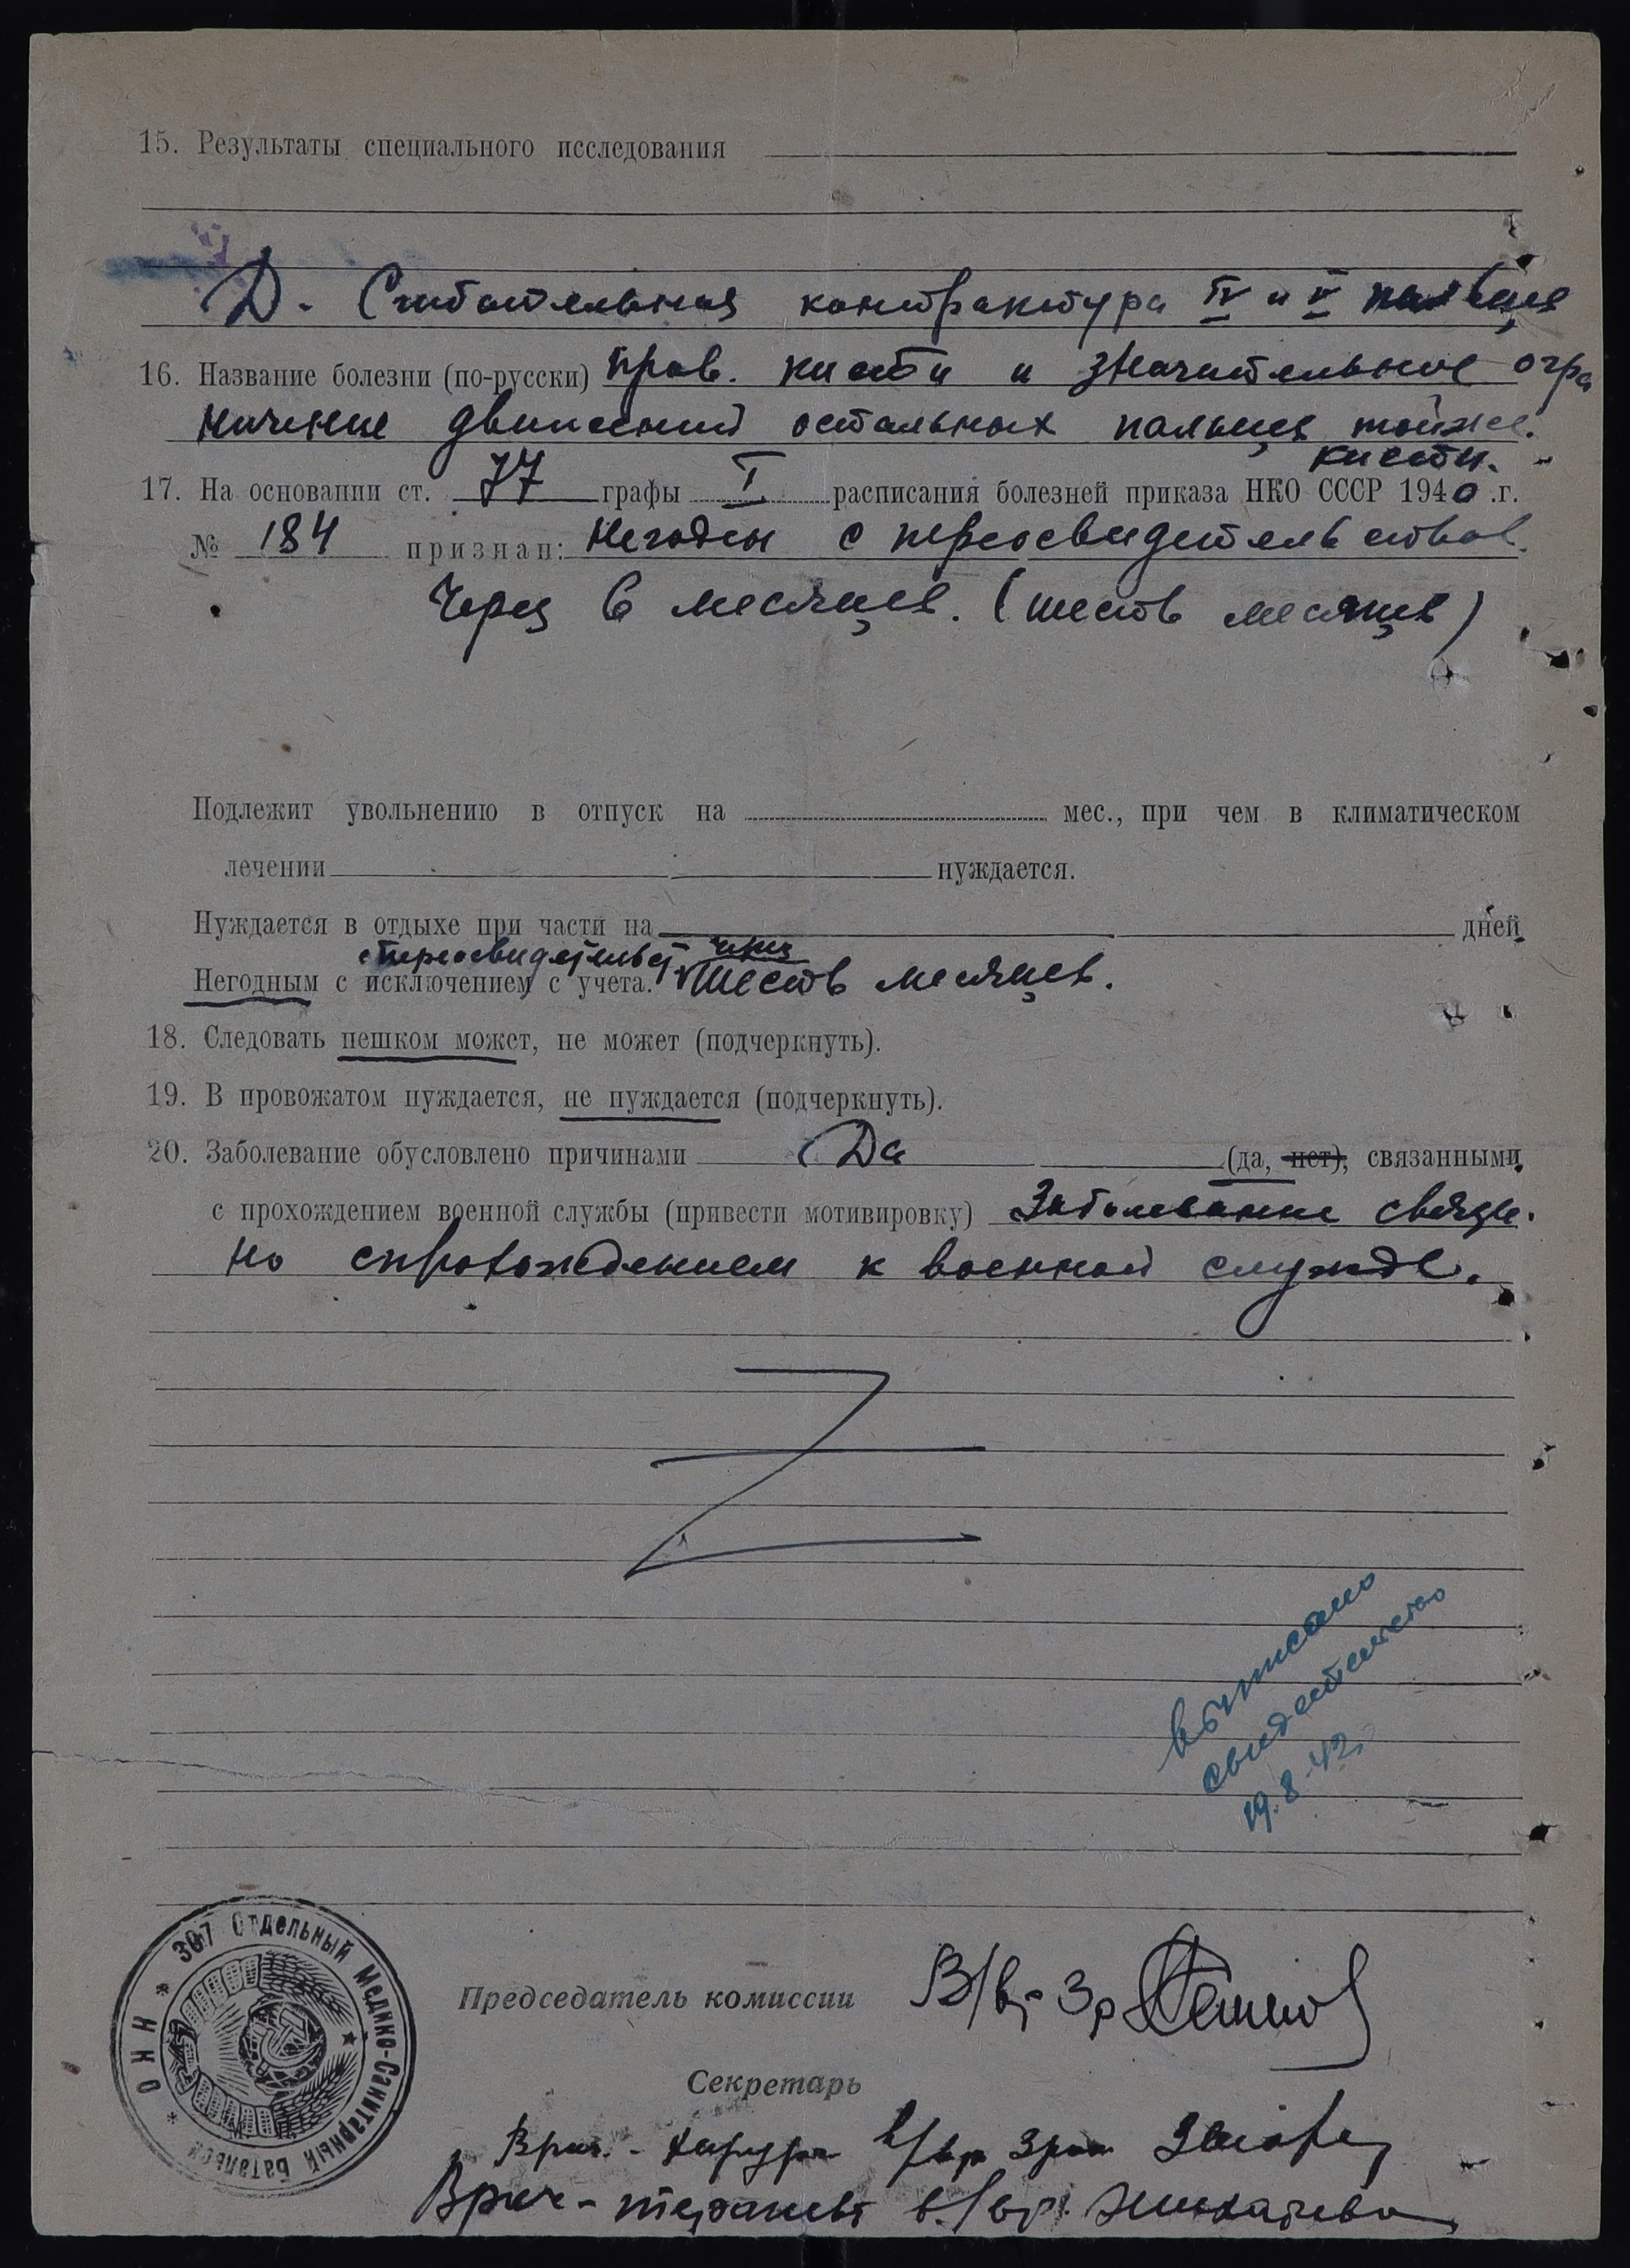 15. Результаты специального исследования
Д. Сгибательная контрактура IV и V пальцев
16. Название болезни (по-русски) прав. кисти и значительное огра
ничение движений остальных пальцев тойже.
кисти.
17. На основании ст. 77 графы I расписания болезней приказа НКО СССР 1940 .г.
№ 184 признан: Негоден с переосвидетельствов.
Через 6 месяцев. (шесть месяцев)
Подлежит увольнению в отпуск на мес., при чем в климатическом
лечении нуждается.
Нуждается в отдыхе при части на дней
с переосвидетельст. через
Негодным с исключением с учета. шесть месяцев.
18. Следовать пешком может, не может (подчеркнуть).
19. В провожатом нуждается, не нуждается (подчеркнуть).
20. Заболевание обусловлено причинами Да (да, нет), связанными
с прохождением военной службы (привести мотивировку) Заболевание связа.
но спрохождением к военной службе.
выписано
свидетельство
19.8.42
307 Отдельный Медико-Санитарный Батальон * НКО *
Председатель комиссии В/вр 3р
Секретарь
Врач - хирург в/вр 3ран
Врач - терапевт в/вр.